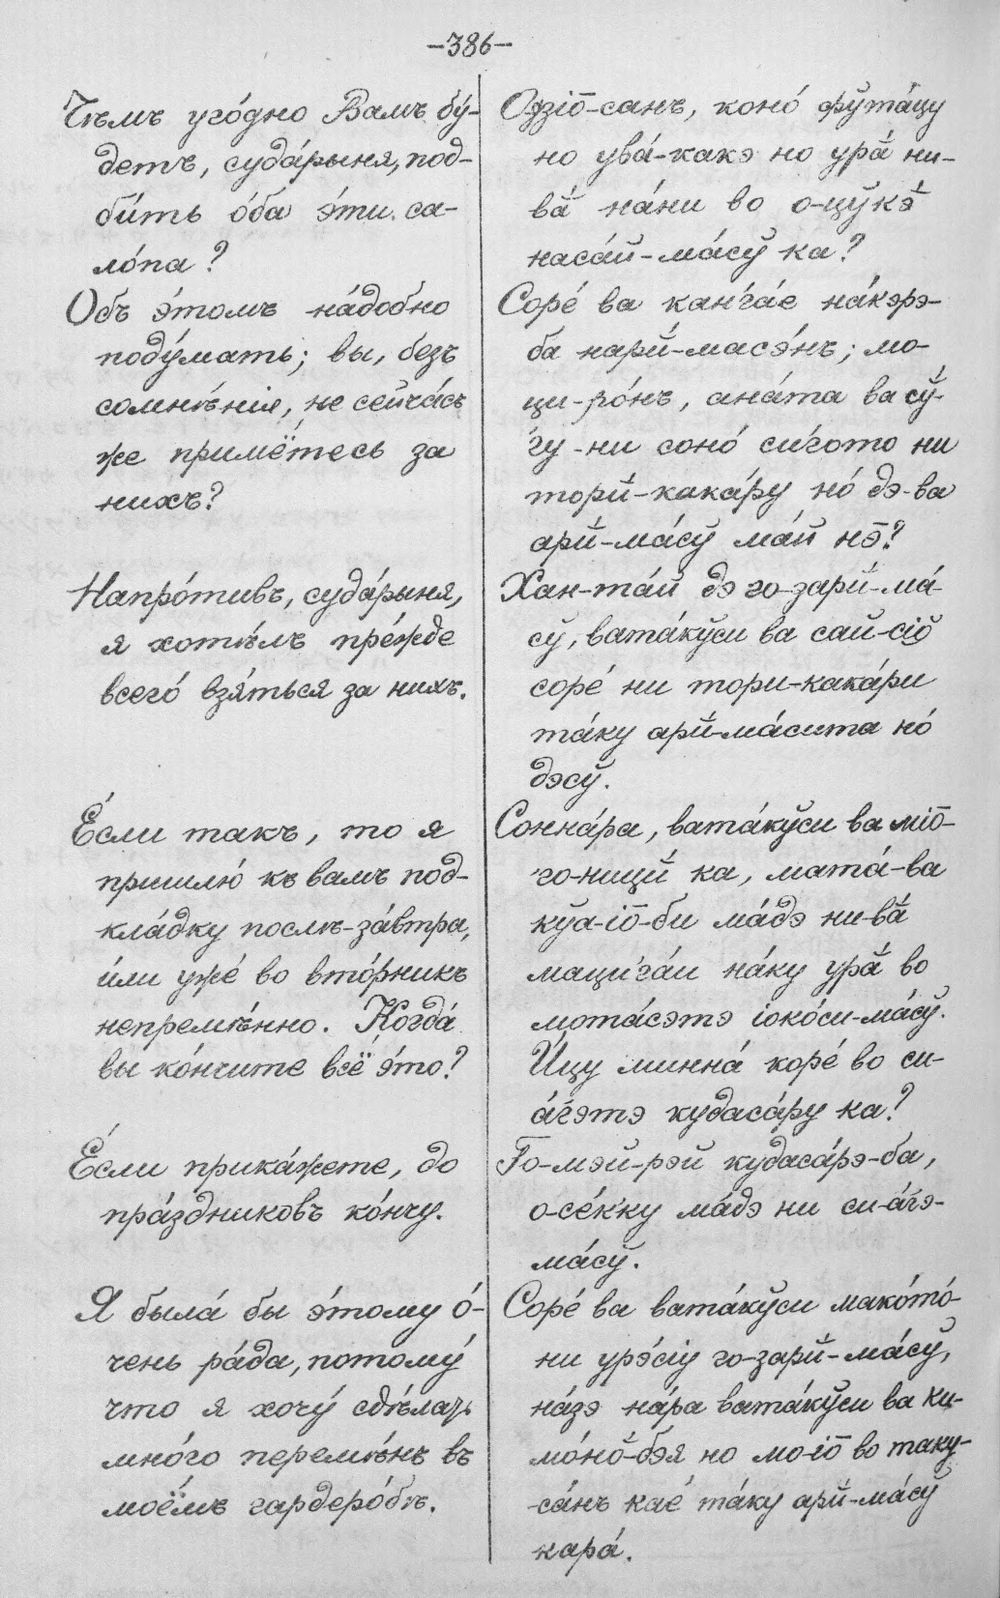 –386–
Чѣмъ уго́дно Вамъ бу́-
детъ, суда́рыня, под-
би́ть о́ба э́ти са-
ло́па?
Объ э́томъ на́добно
поду́мать; вы, безъ
сомнѣ́нія, не сейча́съ
же примётесь за
нихъ?
Напро́тивъ, суда́рыня,
я хотѣ́лъ пре́жде
всего́ взя́ться за нихъ.
Е́сли такъ, то я
пришлю́ къ вамъ под-
кла́дку послѣ-за́втра,
и́ли уже́ во вто́рникъ
непремѣ́нно. Когда́
вы ко́нчите всё э́то?
Е́сли прика́жете, до
пра́здниковъ ко́нчу.
Я была́ бы э́тому о́-
чень ра́да, потому́
что я хочу́ сдѣ́лать
мно́го перемѣ́нъ въ
моёмъ гардеро́бѣ.
Одзіо̄-санъ, коно́ фӯта́цу
но ува́-какэ но ура̄́ ни-
ва̄́ на́ни во о-цӯкэ̄́
наса́й-ма́сӯ ка?
Соре́ ва канга́е на́кэрэ-
ба нари́й-масэ́нъ; мо-
ци-ро́нъ, ана́та ва сӯ́-
гу-ни соно́ си́гото ни
тори́й-кака́ру но́ дэ-ва
ари́й-ма́сӯ ма́й нэ̄?
Хан-та́й дэ го-зари́й-ма́-
сӯ, вата́кӯси ва сай-сіо̄
соре́ ни тори-кака́ри
та́ку ари́й-ма́сита но́
дэсӯ.
Сонна́ра, вата́кӯси ва міо̄-
го-ници́й ка, мата́-ва
кӯа-іо̄-би ма́дэ ни-ва̄́
маци́га́и на́ку ура̄́ во
мота́сэтэ іоко́си-ма́сӯ.
И́цу минна́ коре́ во си-
а́гэтэ кудаса́ру ка?
Го-мэй-рэй кӯдаса́рэ-ба,
о-се́кку ма́дэ ни си-а́гэ-
ма́сӯ.
Соре́ ва вата́кӯси мако́то́-
ни урэ́сіу го-зари́й-ма́сӯ,
на́зэ на́ра вата́кӯси ва ки-
мо́но̄-бэ̄я но мо-іо̄ во таку-
са́нъ кае́ та́ку ари́й-ма́сӯ
кара́.